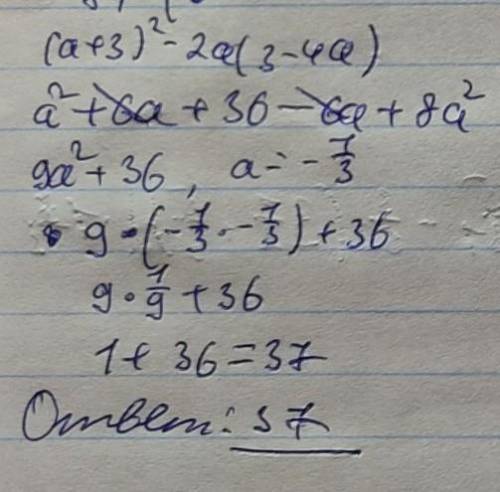 (a+3)² - 2a(3-4a)
a² + 6a + 36 - 6a + 8a²
9a² + 36, a = -1/3
9 · (-1/3 · -1/3) + 36
9 · 1/9 + 36
1 + 36 = 37
Ответ: 37